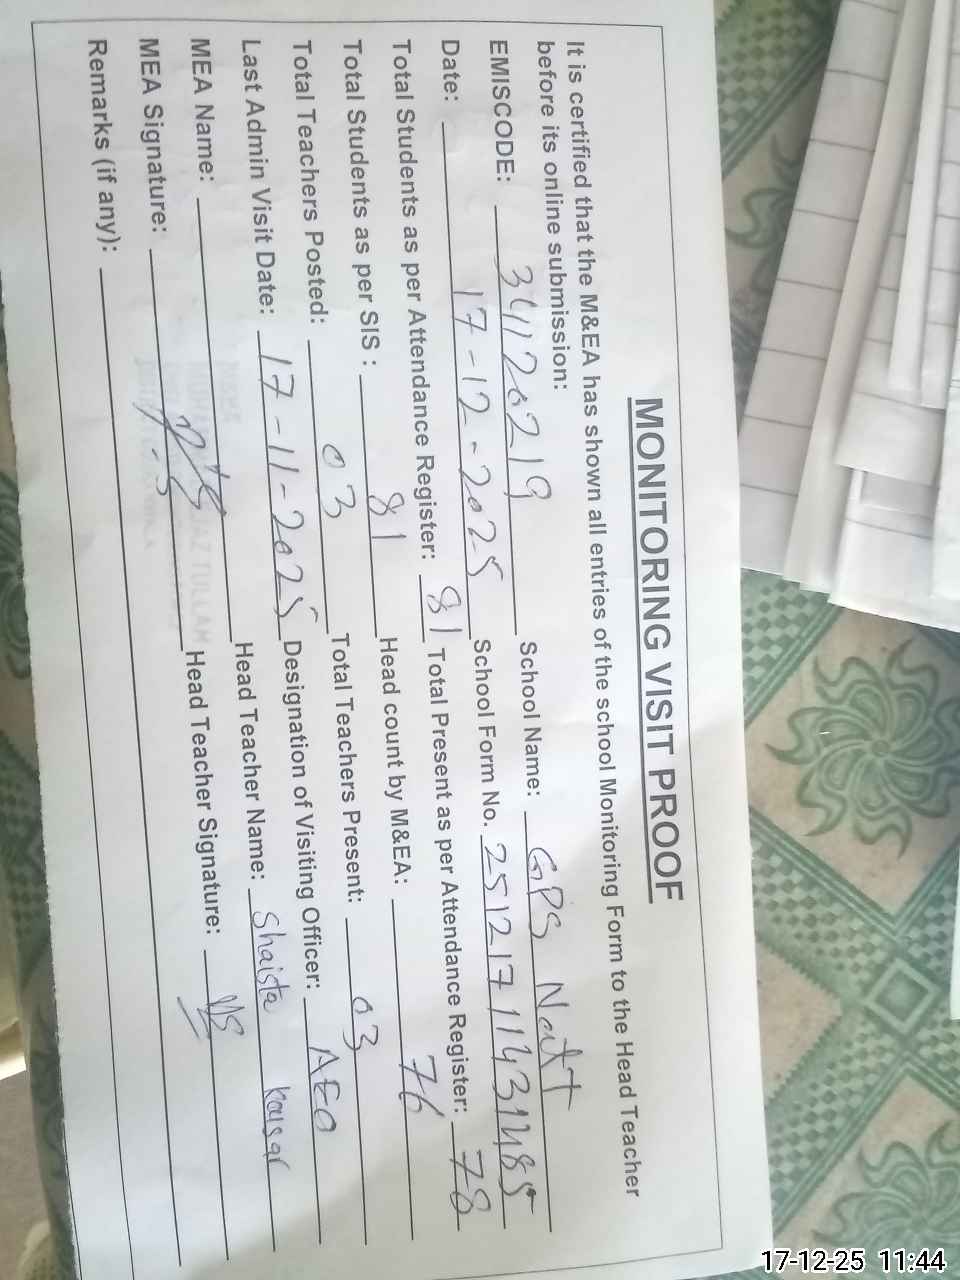 MONITORING VISIT PROOF
It is certified that the M&EA has shown all entries of the school Monitoring Form to the Head Teacher
before its online submission:
EMISCODE: 34120219 School Name: GPS Natt
Date: 17-12-2025 School Form No. 25121711431485
Total Students as per Attendance Register: 81 Total Present as per Attendance Register: 78
Total Students as per SIS : 81 Head count by M&EA: 76
Total Teachers Posted: 03 Total Teachers Present: 03
Last Admin Visit Date: 17-11-2025 Designation of Visiting Officer: AEO
MEA Name: Head Teacher Name: Shaista kousar
MEA Signature: Head Teacher Signature:
Remarks (if any):
17-12-25 11:44